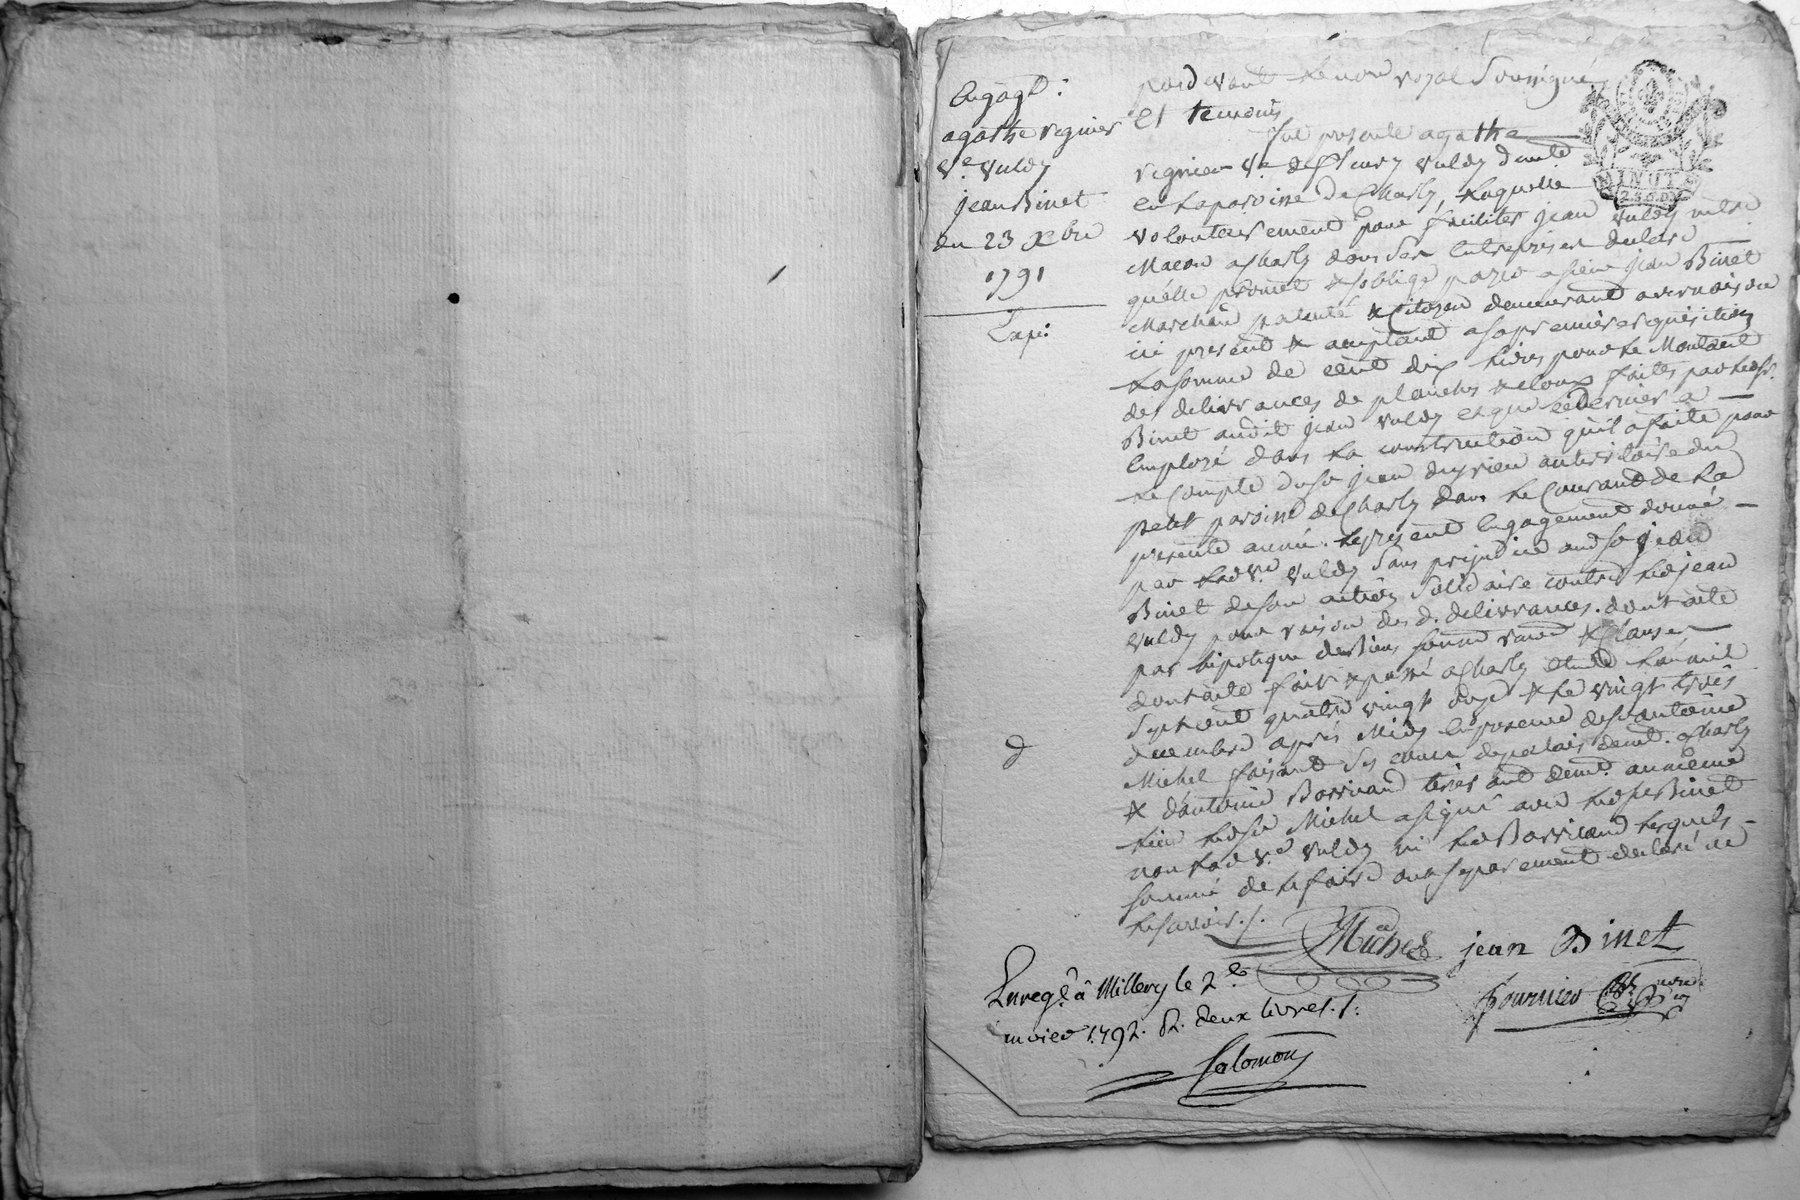 Engagt:
agathe regnier
Ve. Vuldy
jean Binet
du 23 Xbre
1791
Exp:
pardevant le nore royal Soussigné
Et temoins
fut presente agathe
regnier Ve. de fleury Vuldy demte
en la paroisse de Charly, laquelle
volontairement pour faciliter jean Vuldy mtre
Macon a Charly dans ses Entreprises declare
qu'elle promet & soblige payer a sieur jean Binet
Marchand patenté & Citoyen demeurant a vernaison
ici present & acceptant a sa premiere requisition
la somme de cent dix livres pour le Montant
des delivrances de planches & cloux faites par led. sr.
Binet audit jean Vuldy et que ce dernier a
Employé dans la construction qu'il a faite pour
le Compte du sr jean
petit paroisse de Charly dans le Courant de la
presente année. le present Engagement donné
par lad. Ve. Vuldy Sans prejudice aud sr jean
Binet de son action Solidaire contre led jean
Vuldy pour raison des d. delivrances. dont acte
par hipoteque des Biens & Clauses
dont acte fait & passé a Charly Etude lan mil
Sept cent quatre vingt onze & le vingt trois
decembre après Midy En presence de sr antoine
Michel faisant Ses cours de palais demt. a Charly
& d'antoine Barricand demt. au meme
lieu led sr Michel a signé avec led sr Binet
non lad Ve. Vuldy ni led Barricand lesquels
sommé de le faire ont separement declaré ne
le savoir ./.
Michel jean Binet
fournier nore
Enregt. à Millery le 2 le
janvier 1792. R. deux livres. /:
Salomon
MINUTE
2.S.6.D